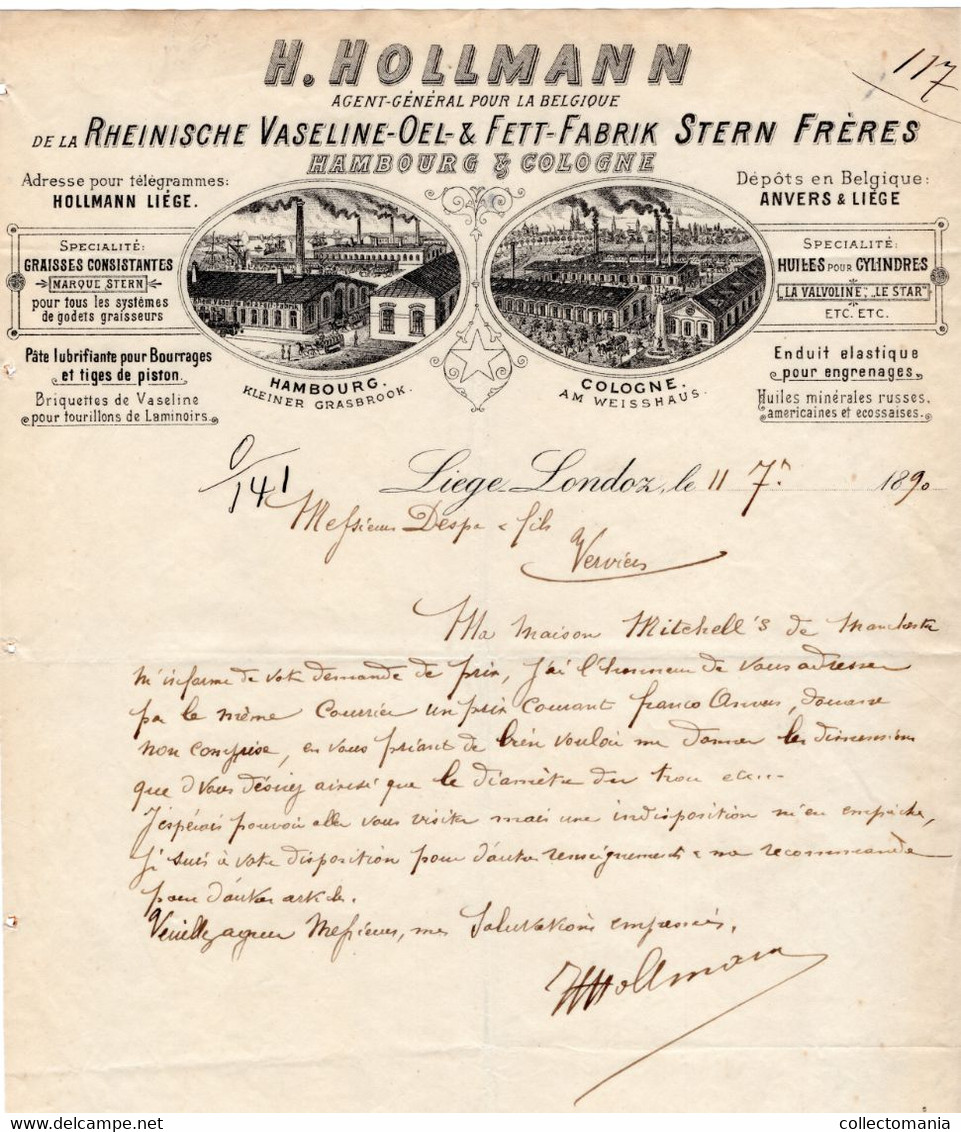 H. HOLLMANN
117
AGENT-GÉNÉRAL POUR LA BELGIQUE
DE LA RHEINISCHE VASELINE-OEL-& FETT-FABRIK STERN FRÈRES
HAMBOURG & COLOGNE
Adresse pour télégrammes:
HOLLMANN LIÉGE.
Dépôts en Belgique:
ANVERS & LIÉGE
SPECIALITÉ:
GRAISSES CONSISTANTES
MARQUE STERN
pour tous les systèmes
de godets graisseurs
SPECIALITÉ:
HUILES POUR CYLINDRES
"LA VALVOLINE", "LE STAR"
ETC. ETC.
Pâte lubrifiante pour Bourrages
et tiges de piston.
Briquettes de Vaseline
pour tourillons de Laminoirs.
HAMBOURG.
KLEINER GRASBROOK.
COLOGNE.
AM WEISSHAUS.
Enduit elastique
pour engrenages.
Huiles minérales russes,
americaines et ecossaises.
0/141
Liége-Londoz, le 11 7r 1890
Messieurs Despa & fils
Verviers
Ma maison Mitchell's de Manchester
m'informe de votre demande de prix, j'ai l'honneur de vous adresser
par le même courrier un prix courant franco Anvers, douane
non comprise, en vous priant de bien vouloir me donner les dimensions
que vous désirez ainsi que le diamètre du trou etc...
J'espérais pouvoir aller vous visiter mais une indisposition m'en empêche,
je suis à votre disposition pour d'autres renseignements & me recommande
pour d'autres articles.
Veuillez agréer Messieurs, mes salutations empressées.
HHollmann
delcampe.net
collectomania